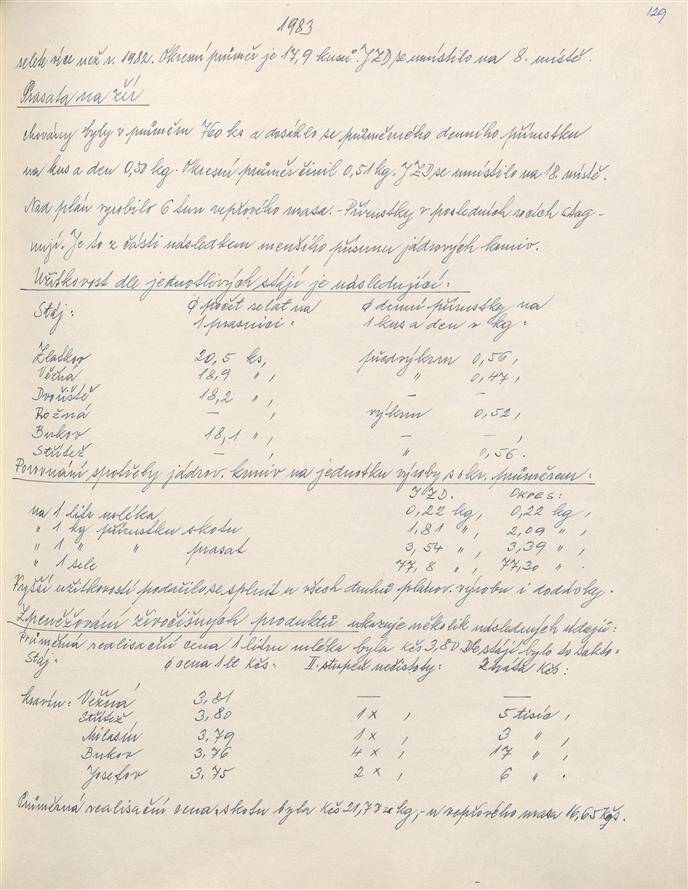 1983
129
selete více než r. 1982. Okresní průměr je 17,9 kusů. JZD se umístilo na 8. místě.
Prasata na žír
chovány byly v průměru 760 ks a dosáhlo se průměrného denního přírustku
na kus a den 0,50 kg. Okresní průměr činil 0,51 kg. JZD se umístilo na 18. místě.
Nad plán vyrobilo 6 tun vepřového masa. - Přírustky v posledních rocích stag-
nují. Je to z části následkem menšího přísunu jádrových krmiv.
Užitkovost dle jednotlivých stájí je následující:
Stáj: ϕ počet selat na ϕ denní přírustky na
1 prasnici: 1 kus a den v kg:
Zlatkov 20,5 ks, předvýkrm 0,56,
Věžná 18,9 ", " 0,47,
Dvořiště 18,2 ", — —
Rožná — , výkrm 0,52,
Bukov 18,1 ", — — ,
Střítež — " 0,56.
Porovnání spotřeby jádrov. krmiv na jednotku výroby s okr. průměrem:
JZD. OKRES:
na 1 litr mléka 0,22 kg, 0,22 kg,
" 1 kg přírustku skotu 1,81 ", 2,09 ",
" 1 " " prasat 3,54 ", 3,39 ",
" 1 sele 77,8 ", 77,30 " .
Vyšší užitkovostí podařilo se splnit u všech druhů plánov. výrobu i dodávky.
Zpeněžování živočišných produktů ukazuje několik následných údajů:
Průměrná realisační cena 1 litru mléka byla Kčs 3,80. Dle stájí bylo to takto:
Stáj: ϕ cena 1 lt Kčs: II. stupeň nečistoty: Ztráta Kčs:
kravín: Věžná 3,81 — —
Střítež 3,80 1 x , 5 tisíc,
Milasín 3,79 1 x , 3 " ,
Bukov 3,76 4 x , 17 " ,
Josefov 3,75 2 x , 6 " .
Průměrná realisační cena skotu byla Kčs 21,77 za kg, - u vepřového masa 16,65 Kčs.